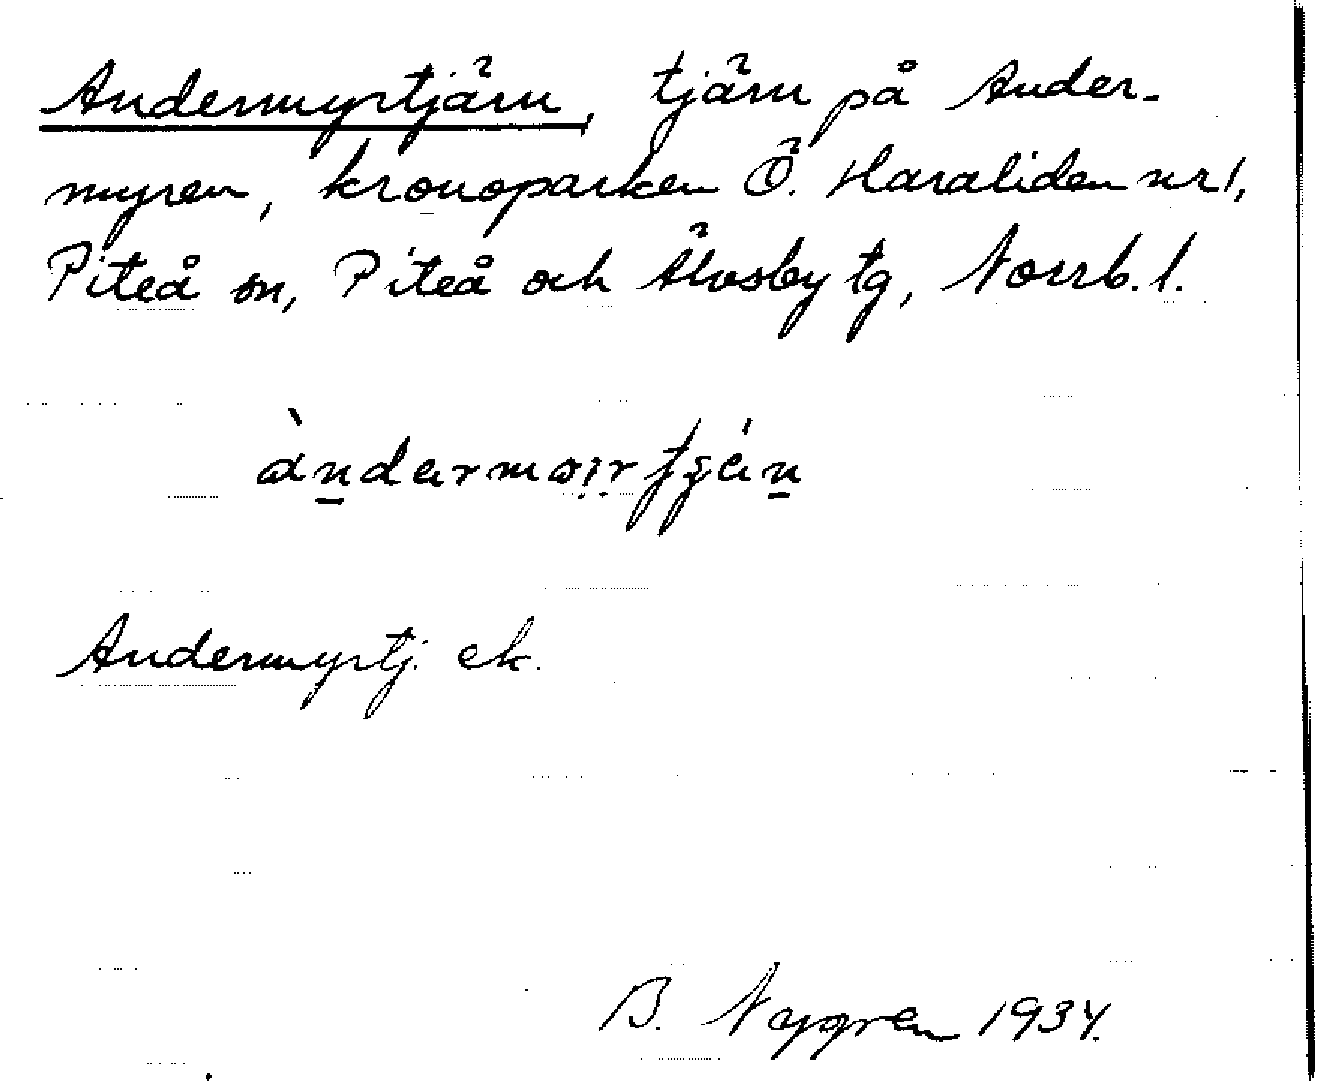 Andermyrtjärn, tjärn på Ander-
myren, kronoparken Ö. Haraliden nr 1,
Piteå sn, Piteå och Älvsby tg, Norrb. l.
Andermyrtj. ek.
B. Nygren 1934.